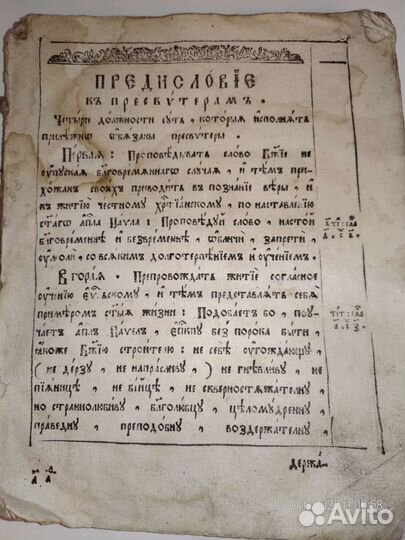 ПРЕДИСЛО́ВІЕ
КЪ ПРЕСВѴТЕРАМЪ .
Четыри должности суть , которыя исполнять
прилѣжнѡ ѡбязаны пресвѵтеры .
Пе́рвая : Проповѣдывать слово Бж҃їе не
ѹпуская благовремяннагѡ случая , и тѣмъ при-
хожанъ своихъ приводить в познаніе вѣры , и
къ житїю честному хрⷭ҇тїанскому , по наставленїю
ст҃а́гѡ ап҃ла Паѵла : Проповѣдуй слово , настой
благовременнѣ и безвременнѣ , ѡбличи , запрети ,
ѹмоли со всякимъ долготерпѣнїемъ и ѹченїемъ .
Вторая . Препровождать житїе согласное
ѹченїю еѵⷢ҇льскому , и тѣмъ представлять себя
примѣромъ ст҃ыя жизни : Подобаетъ бо , по-
учаетъ ап҃лъ Паѵелъ , еп҃ⷭ҇кпу без порока быти ,
ꙗкоже Бж҃їю строителю : не себѣ ѹгождающу ,
( не дерзу , не напрасливу , ) не гнѣвливу , не
пїянице , не бїйце , не скверностяжателну ,
но страннолюбиву , бл҃голюбцу , цѣломудренну ,
праведну , преподобну , воздержателну ,
держа́-
Avito